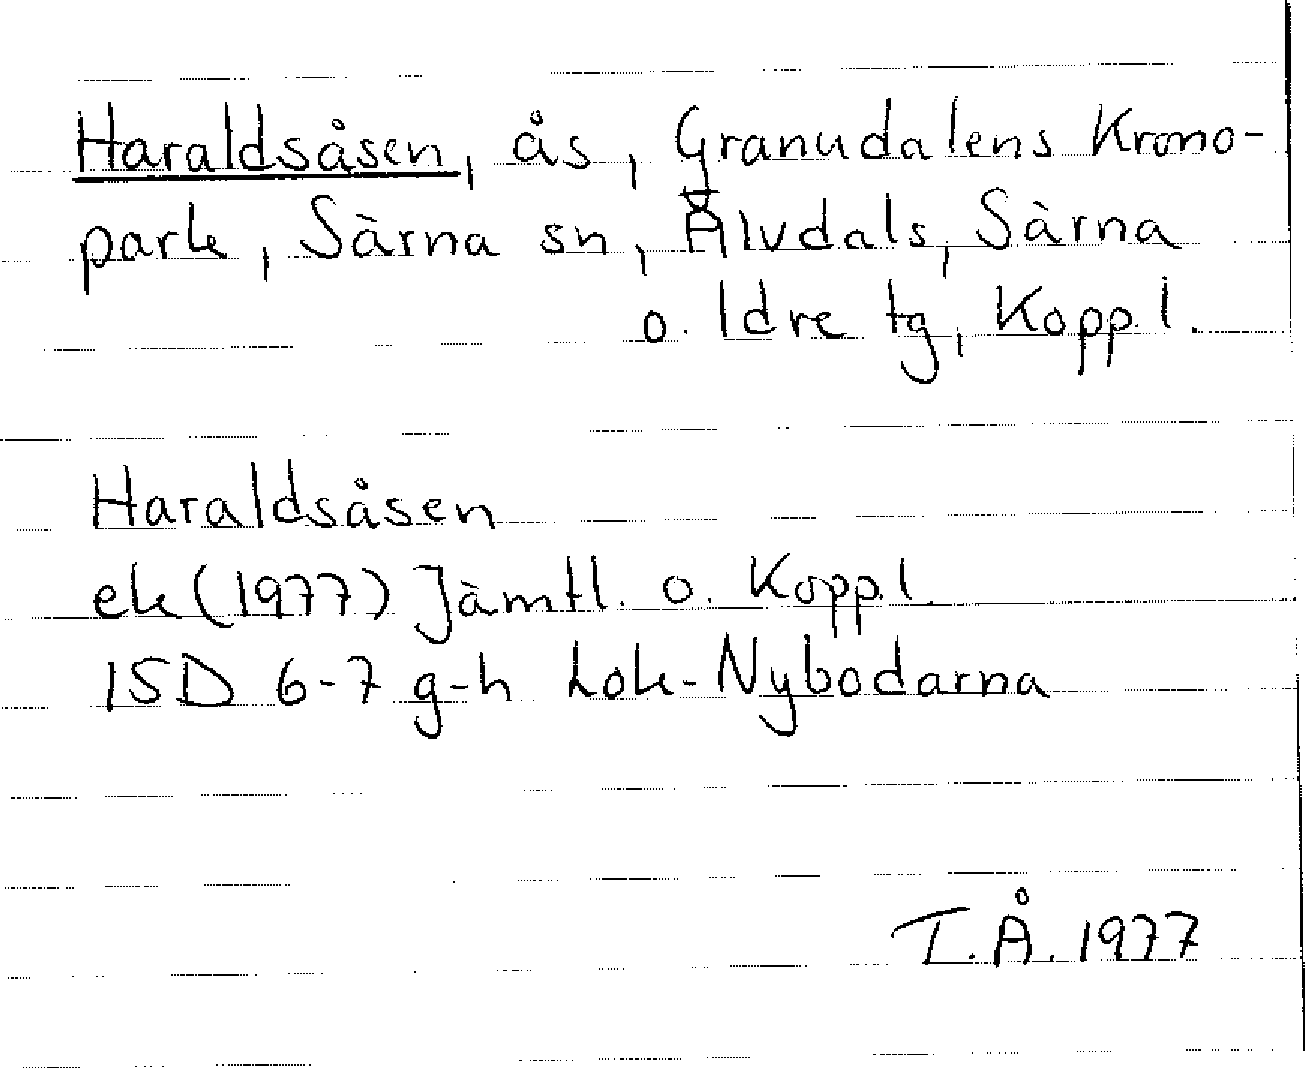 Haraldsåsen, ås, Granudalens Krono-
park, Särna sn, Älvdals, Särna
o. Idre tg, Koppl.
Haraldsåsen
ek (1977) Jämtl. o. Koppl.
15D 6-7 g-h Lok-Nybodarna
T.Å. 1977